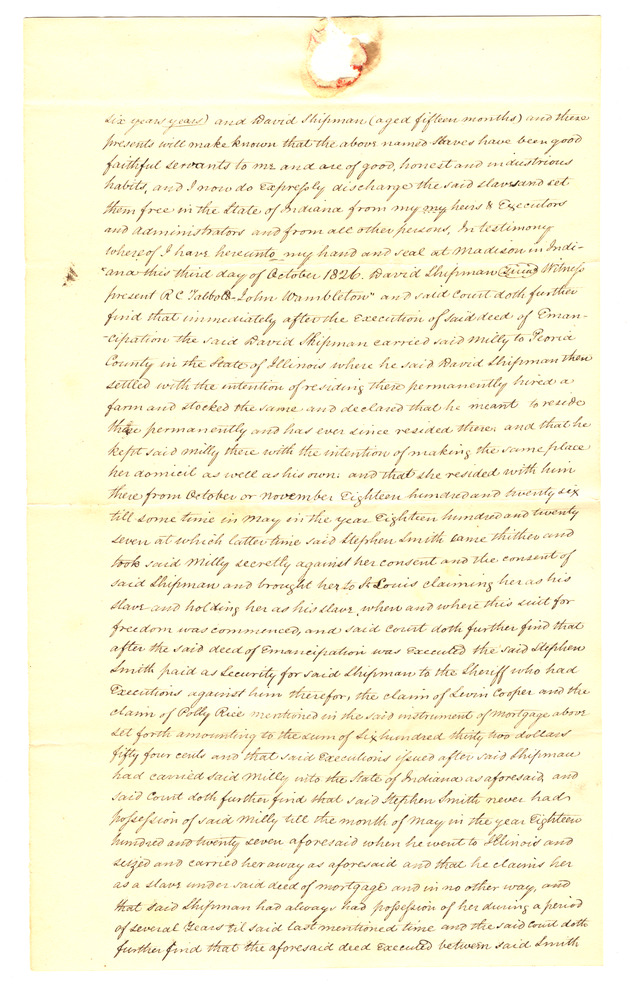 six years years) and David Shipman (aged fifteen months) and these
presents will make known that the above named slaves have been good
faithful servants to me and are of good, honest and industrious
habits, and I now do expressly discharge the said slaves and set
them free in the State of Indiana from my my heirs & Executors
and administrators and from all other persons, In testimony
whereof I have hereunto my hand and seal at Madison in Indi-
"ana this third day of October 1826. David Shipman Witness
present R C Talbott - John Wambleton" and said Court doth further
find that immediately after the Execution of said deed of Eman-
-cipation the said David Shipman carried said Milly to Peoria
County in the State of Illinois where he said David Shipman then
settled with the intention of residing there permanently hired a
farm and stocked the same and declared that he meant to reside
there permanently and has ever since resided there. and that he
kept said Milly there with the intention of making the same place
her domicil as well as his own. and that she resided with him
there from October or November Eighteen hundred and twenty six
till some time in May in the year Eighteen hundred and twenty
seven at which latter time said Stephen Smith came thither and
took said Milly secretly against her consent and the consent of
said Shipman and brought her to St Louis claiming her as his
slave and holding her as his slave when and where this suit for
freedom was commenced, and said Court doth further find that
after the said deed of Emancipation was Executed the said Stephen
Smith paid as Security for said Shipman to the Sheriff who had
Executions against him therefor, the claim of Levin Cooper and the
claim of Polly Rice mentioned in the said instrument of mortgage above
set forth amounting to the sum of Six hundred thirty two dollars
fifty four cents and that said Executions issued after said Shipman
had carried said Milly into the State of Indiana as aforesaid, and
said Court doth further find that said Stephen Smith never had
possession of said Milly till the month of May in the year Eighteen
hundred and twenty seven aforesaid when he went to Illinois and
seized and carried her away as aforesaid and that he claims her
as a slave under said deed of mortgage and in no other way, and
that said Shipman had always had possession of her during a period
of several Years til said last mentioned time and the said Court doth
further find that the aforesaid deed Executed between said Smith